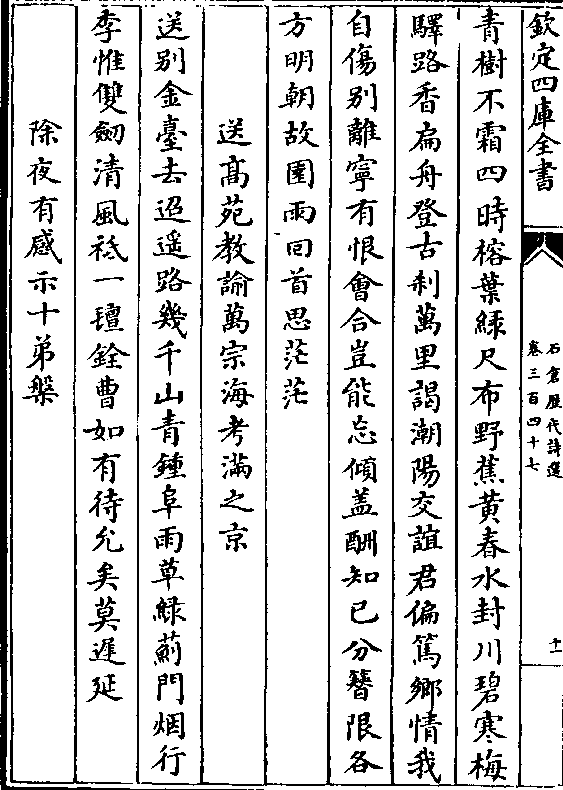 欽定四庫全書
石倉歷代詩選
卷三百四十七
十一
青樹不霜四時榕葉緑尺布野蕉黄春水封川碧寒梅
驛路香扁舟登古刹萬里謁潮陽交誼君偏篤鄉情我
自傷别離寧有恨會合豈能忘傾盖酬知已分簮限各
方明朝故園雨回首思茫茫
送髙苑教諭萬宗海考滿之京
送别金臺去迢遥路幾千山青鍾阜雨草緑薊門烟行
李惟雙劒清風祗一氊銓曹如有待允矣莫遲延
除夜有感示十弟槃